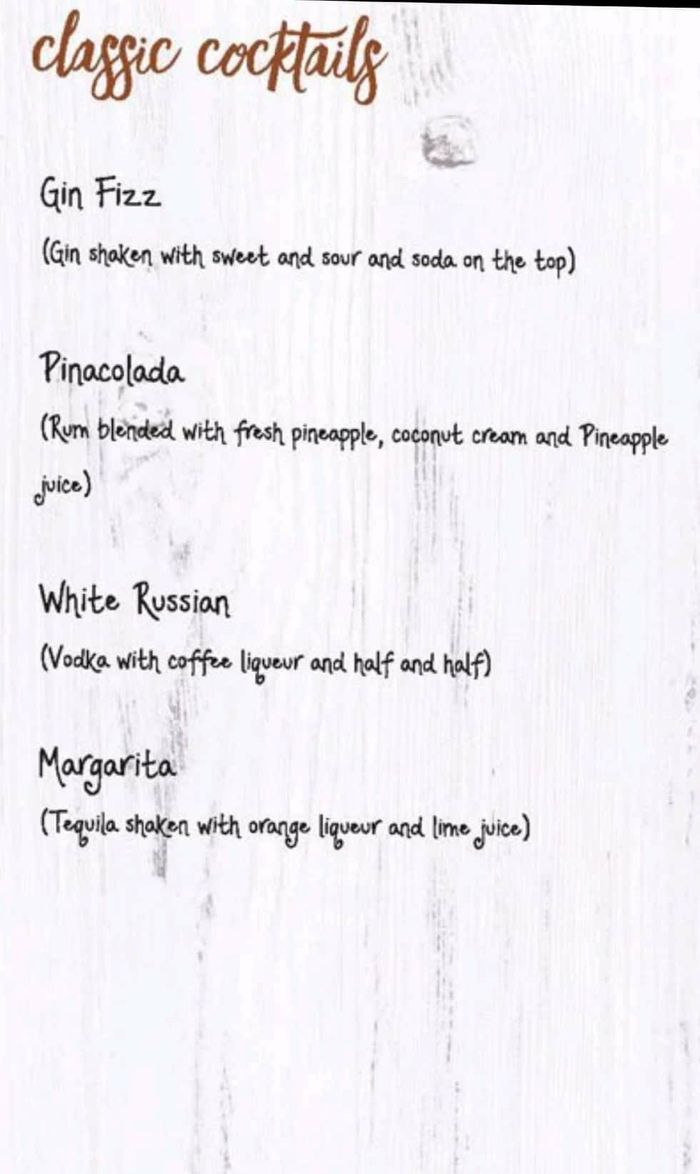 classic cocktails
Gin Fizz
(Gin shaken with sweet and sour and soda on the top)
Pinacolada
(Rum blended with fresh pineapple, coconut cream and Pineapple
juice)
White Russian
(Vodka with coffee liqueur and half and half)
Margarita
(Tequila shaken with orange liqueur and lime juice)